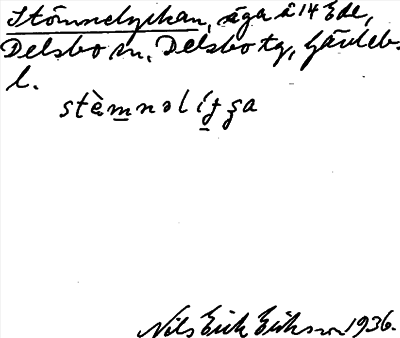 Stömnelyckan, äga å 14 Ede,
Delsbo sn, Delsbo tg, Gävleb.
l.
Nils Erik Eriksson 1936.